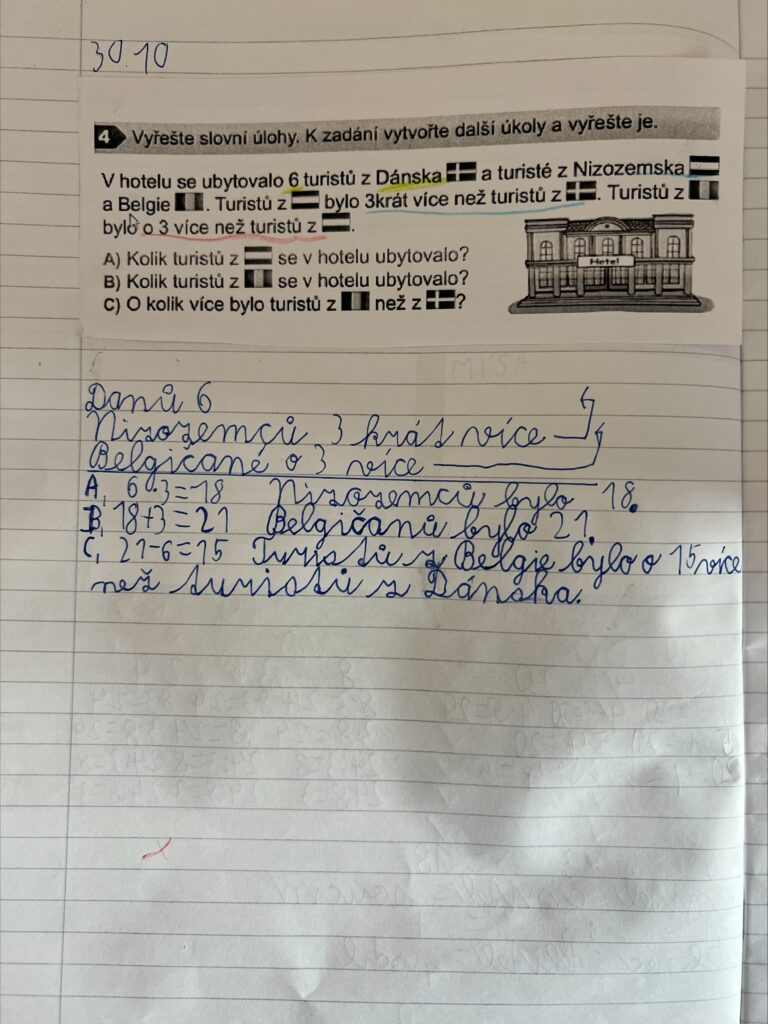 30.10
4 Vyřešte slovní úlohy. K zadání vytvořte další úkoly a vyřešte je.
V hotelu se ubytovalo 6 turistů z Dánska a turisté z Nizozemska
a Belgie . Turistů z bylo 3krát více než turistů z . Turistů z
bylo o 3 více než turistů z .
A) Kolik turistů z se v hotelu ubytovalo?
B) Kolik turistů z se v hotelu ubytovalo?
C) O kolik více bylo turistů z než z ?
Hotel
Danů 6
Nizozemců 3 krát více
Belgičané o 3 více
A, 6·3=18 Nizozemců bylo 18.
B, 18+3=21 Belgičanů bylo 21.
C, 21-6=15 Turistů z Belgie bylo o 15 více
než turistů z Dánska.